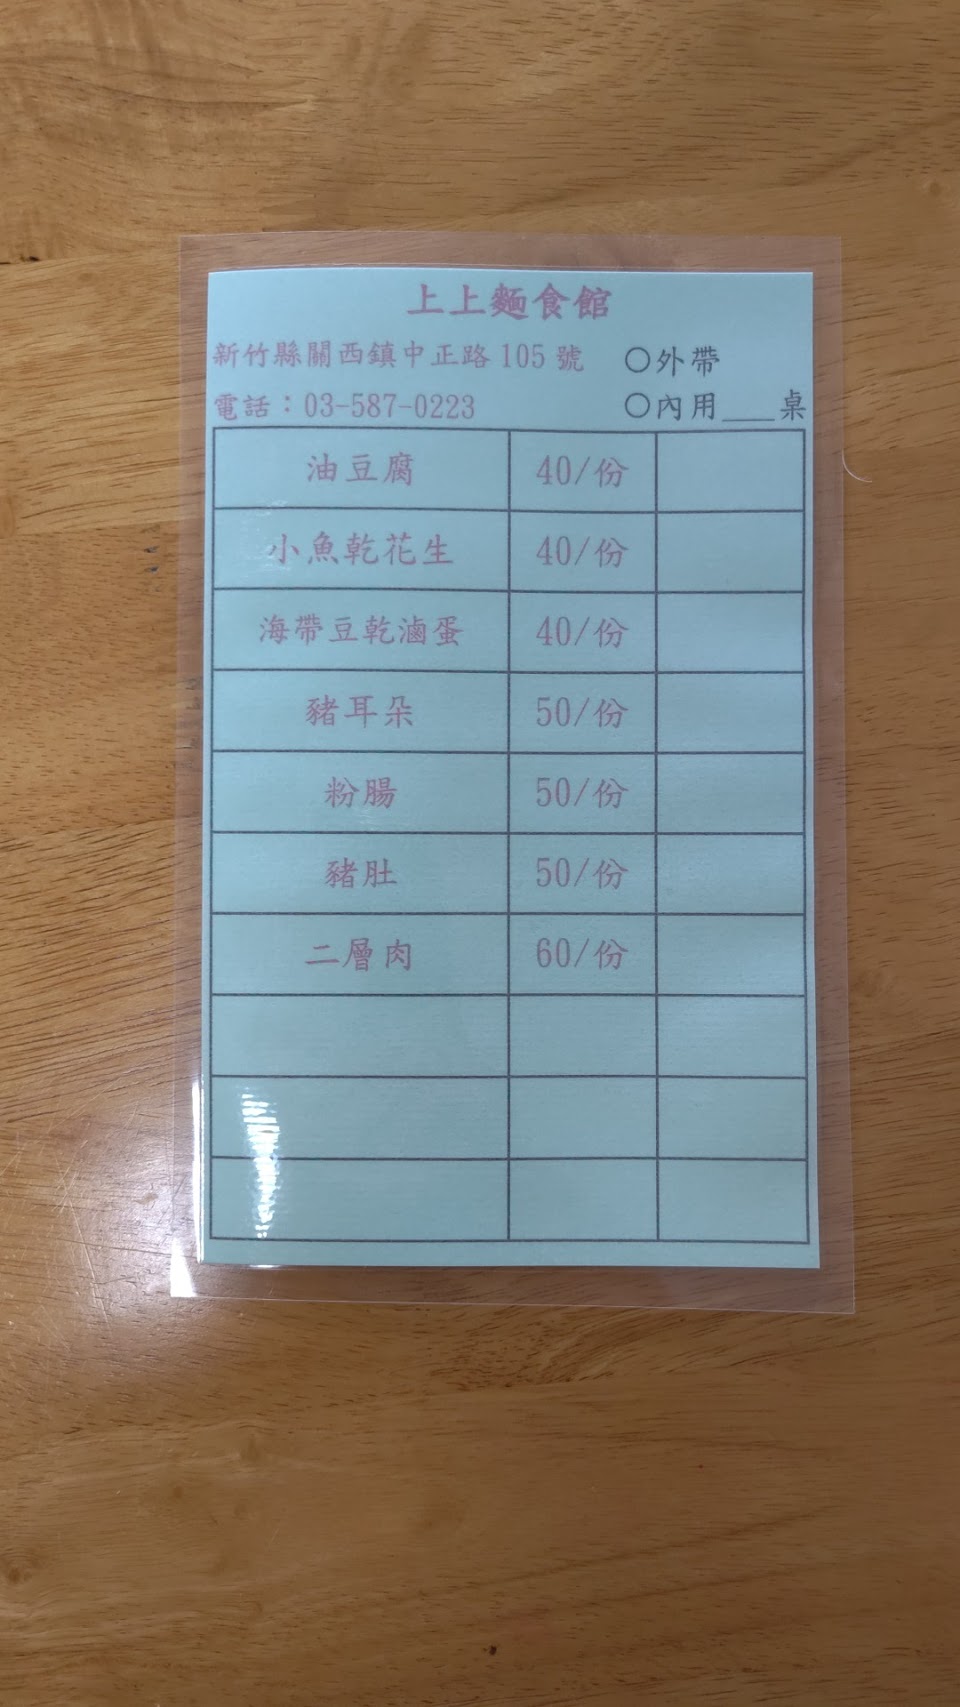 上上麵食館
新竹縣關西鎮中正路 105 號 ○外帶
電話：03-587-0223 ○內用___桌
油豆腐 40/份
小魚乾花生 40/份
海帶豆乾滷蛋 40/份
豬耳朵 50/份
粉腸 50/份
豬肚 50/份
二層肉 60/份